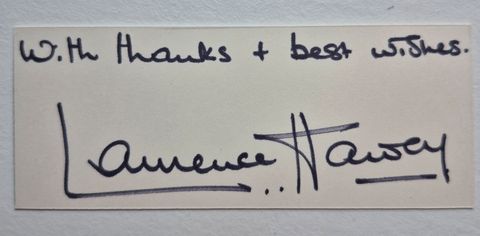 With thanks + best wishes.
Laurence Harvey